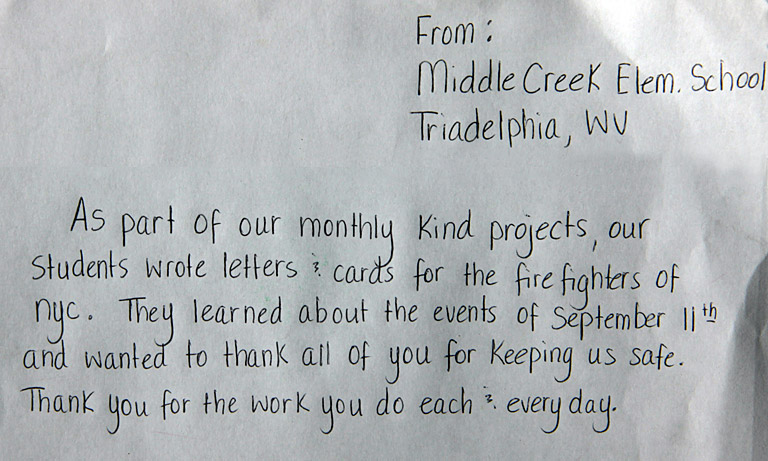 From:
Middle Creek Elem. School
Triadelphia, WV
As part of our monthly Kind projects, our
students wrote letters & cards for the fire fighters of
nyc. They learned about the events of September 11th
and wanted to thank all of you for keeping us safe.
Thank you for the work you do each & every day.